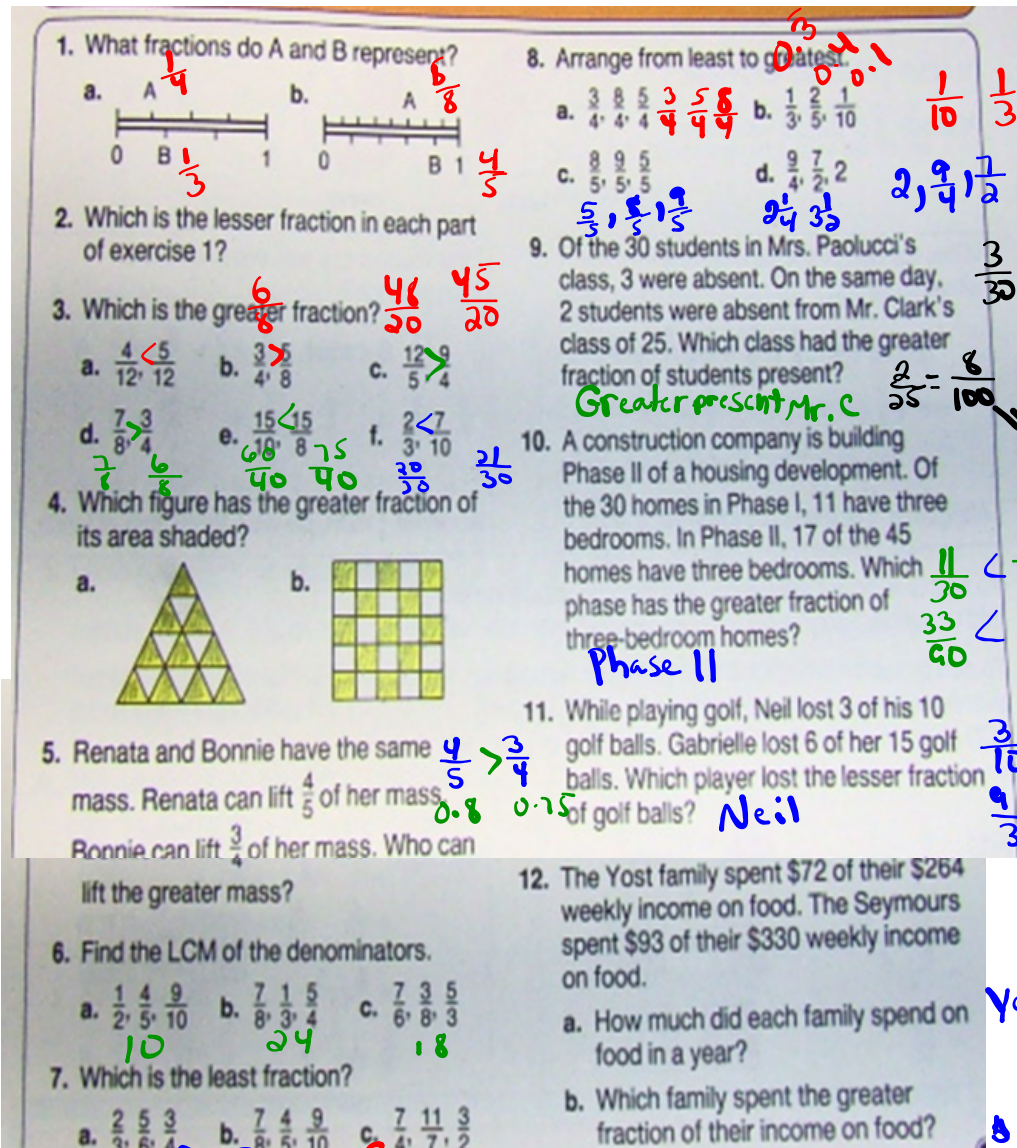 1. What fractions do A and B represent?
1/4
6/8
a. A b. A
0 B 1 0 B 1
1/3
4/5
2. Which is the lesser fraction in each part
of exercise 1?
3. Which is the greater fraction?
6/8 48/20 45/20
a. 4/12, < 5/12 b. 3/4, > 5/8 c. 12/5, > 9/4
d. 7/8, > 3/4 e. 15/10, < 15/8 f. 2/3, < 7/10
7/8 6/8 60/40 75/40 20/30 21/30
4. Which figure has the greater fraction of
its area shaded?
a. b.
5. Renata and Bonnie have the same
4/5 > 3/4
mass. Renata can lift 4/5 of her mass.
0.8 0.75
Bonnie can lift 3/4 of her mass. Who can
lift the greater mass?
6. Find the LCM of the denominators.
a. 1/2, 4/5, 9/10 b. 7/8, 1/3, 5/4 c. 7/6, 3/8, 5/3
10 24 18
7. Which is the least fraction?
a. 2/3, 5/6, 3/4 b. 7/8, 4/5, 9/10 c. 7/4, 11/7, 3/2
8. Arrange from least to greatest.
0.3 0.4 0.1
a. 3/4, 8/4, 5/4 3/4 5/4 8/4 b. 1/3, 2/5, 1/10 1/10 1/3
c. 8/5, 9/5, 5/5 d. 9/4, 7/2, 2 2, 9/4, 7/2
5/5, 8/5, 9/5 2 1/4 3 1/2
9. Of the 30 students in Mrs. Paolucci's
class, 3 were absent. On the same day,
3/30
2 students were absent from Mr. Clark's
class of 25. Which class had the greater
fraction of students present?
2/25 = 8/100
Greater present Mr. C
10. A construction company is building
Phase II of a housing development. Of
the 30 homes in Phase I, 11 have three
bedrooms. In Phase II, 17 of the 45
homes have three bedrooms. Which
11/30 <
phase has the greater fraction of
three-bedroom homes?
33/90 <
Phase II
11. While playing golf, Neil lost 3 of his 10
golf balls. Gabrielle lost 6 of her 15 golf
3/10
balls. Which player lost the lesser fraction
of golf balls? Neil
12. The Yost family spent $72 of their $264
weekly income on food. The Seymours
spent $93 of their $330 weekly income
on food.
a. How much did each family spend on
food in a year?
b. Which family spent the greater
fraction of their income on food?